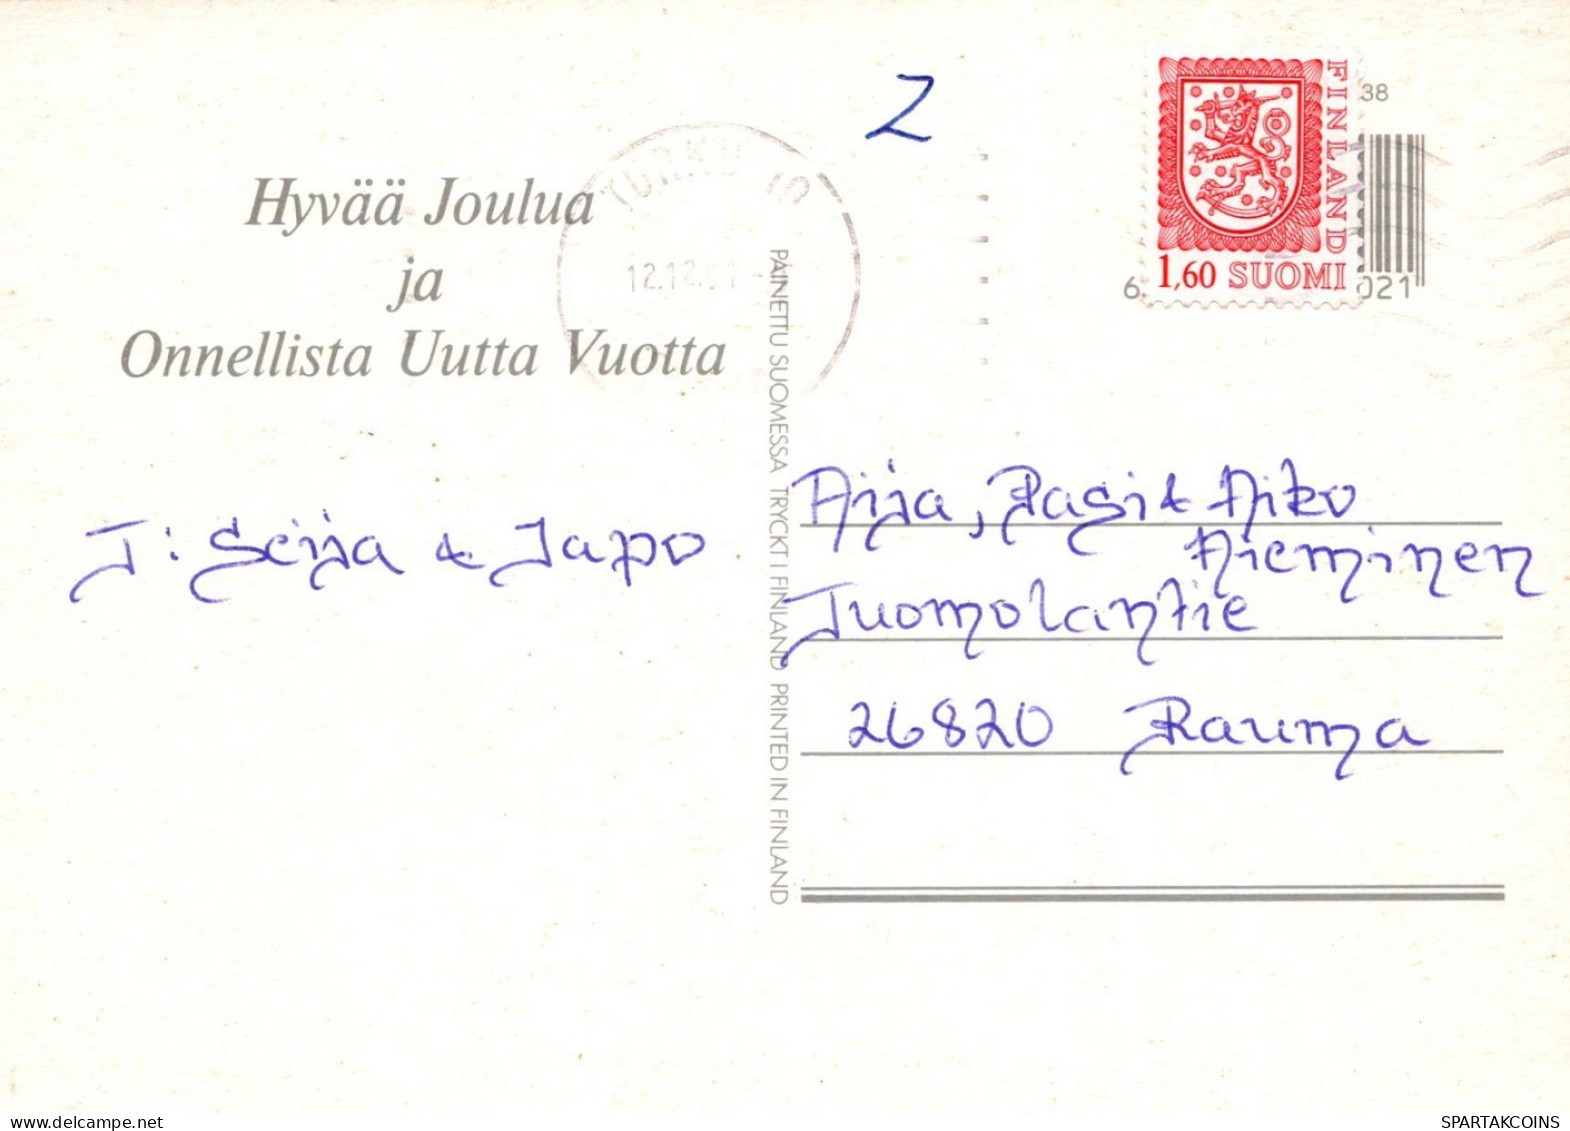 Z
FINLAND
38
1,60 SUOMI
6
021
TURKU 10
12.12.
Hyvää Joulua
ja
Onnellista Uutta Vuotta
T: Seija & Japo
PAINETTU SUOMESSA TRYCKT I FINLAND PRINTED IN FINLAND
Aija, Pasi & Niko
Nieminen
Tuomolantie
26820 Rauma
www.delcampe.net
SPARTAKCOINS